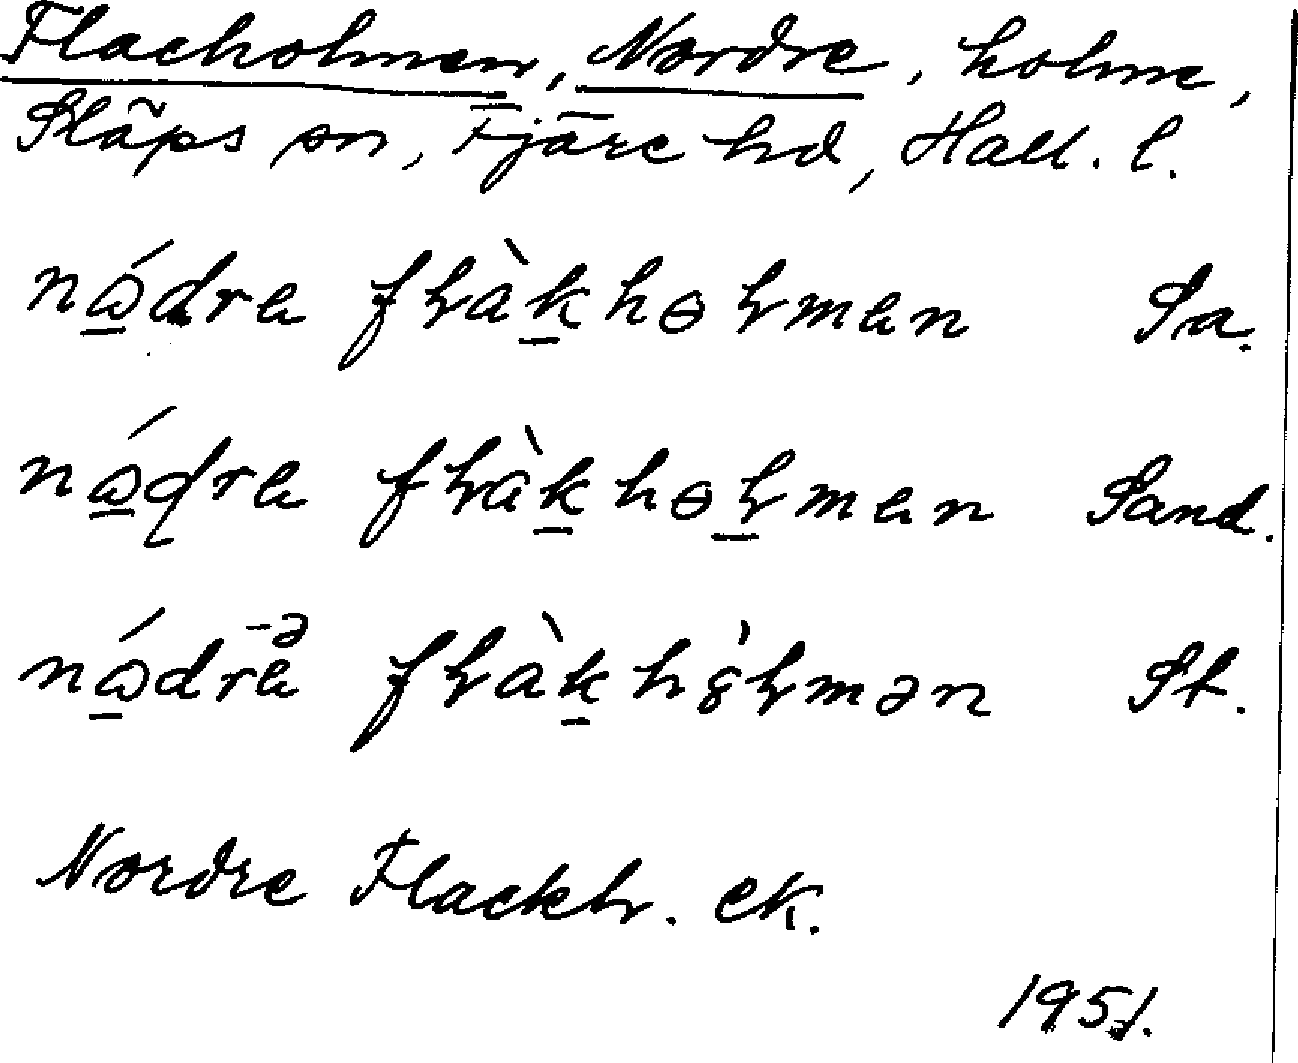 Flacholmen, Nordre, holme,
Släps sn, Fjäre hd, Hall. l.
nǿdra flàkhɵlman Sa.
nǿdra flàkhɵlman Sand.
nǿdra flàkhölmən St.
Nordre Flackh. ek.
1951.